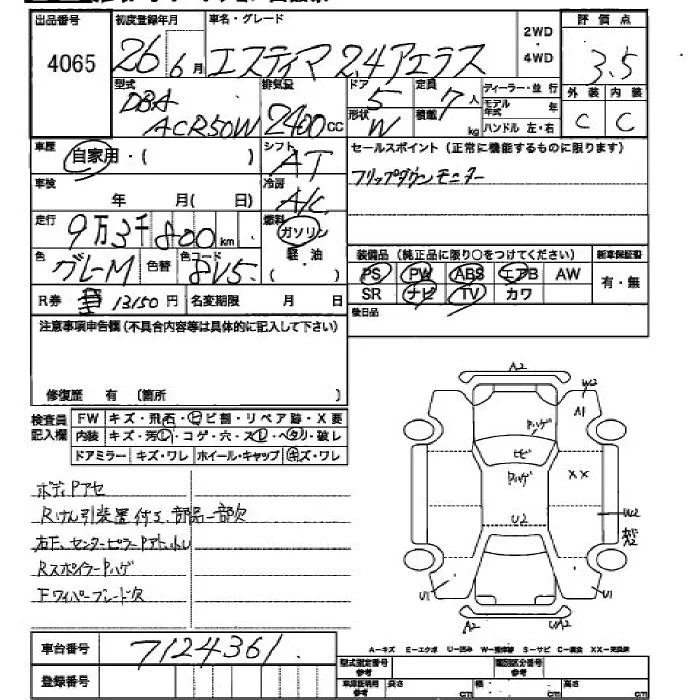 出品番号
4065
初度登録年月
26年6月
車名・グレード
エスティマ 2.4アエラス
2WD
・
4WD
評価点
3.5
外装 内装
C C
型式
DBA
ACR50W
排気量
2400cc
ドア
5
形状
W
定員
7人
積載
kg
ディーラー・並行
モデル年式 年
ハンドル 左・右
車歴
自家用・( )
シフト
AT
セールスポイント(正常に機能するものに限ります)
フリップダウンモニター
車検
年 月( 日)
冷房
A/C
走行
9万3千800km
燃料
ガソリン
軽油
色
グレーM
色替
色コード
8V5
装備品(純正品に限り○をつけてください)
新車保証書
PS PW ABS エアB AW
SR ナビ TV カワ
有・無
R券
13150円
名変期限 月 日
後日品
注意事項申告欄(不具合内容等は具体的に記入して下さい)
修復歴 有 〔箇所 〕
検査員
記入欄
FW キズ・飛石・ヒビ割・リペア跡・X要
内装 キズ・汚レ・コゲ・穴・スレ・ヘタリ・破レ
ドアミラー キズ・ワレ ホイール・キャップ キズ・ワレ
ボディPアセ
Rけん引装置付き、部品一部欠
右F、センターピラーPアト、小U
RスポイラーPハゲ
Fワイパーブレード欠
A2
W2
A1
Pハゲ
ヒビ
Pハゲ
XX
U2
UW2
U1
U1
A2
UW2
車台番号
7124361
登録番号
A−キズ E−エクボ U−凹み W−補修跡 S−サビ C−腐食 XX−交換済
型式指定番号
参考
類別区分番号
参考
車庫証明用
参考
長さ cm
幅 cm
高さ cm